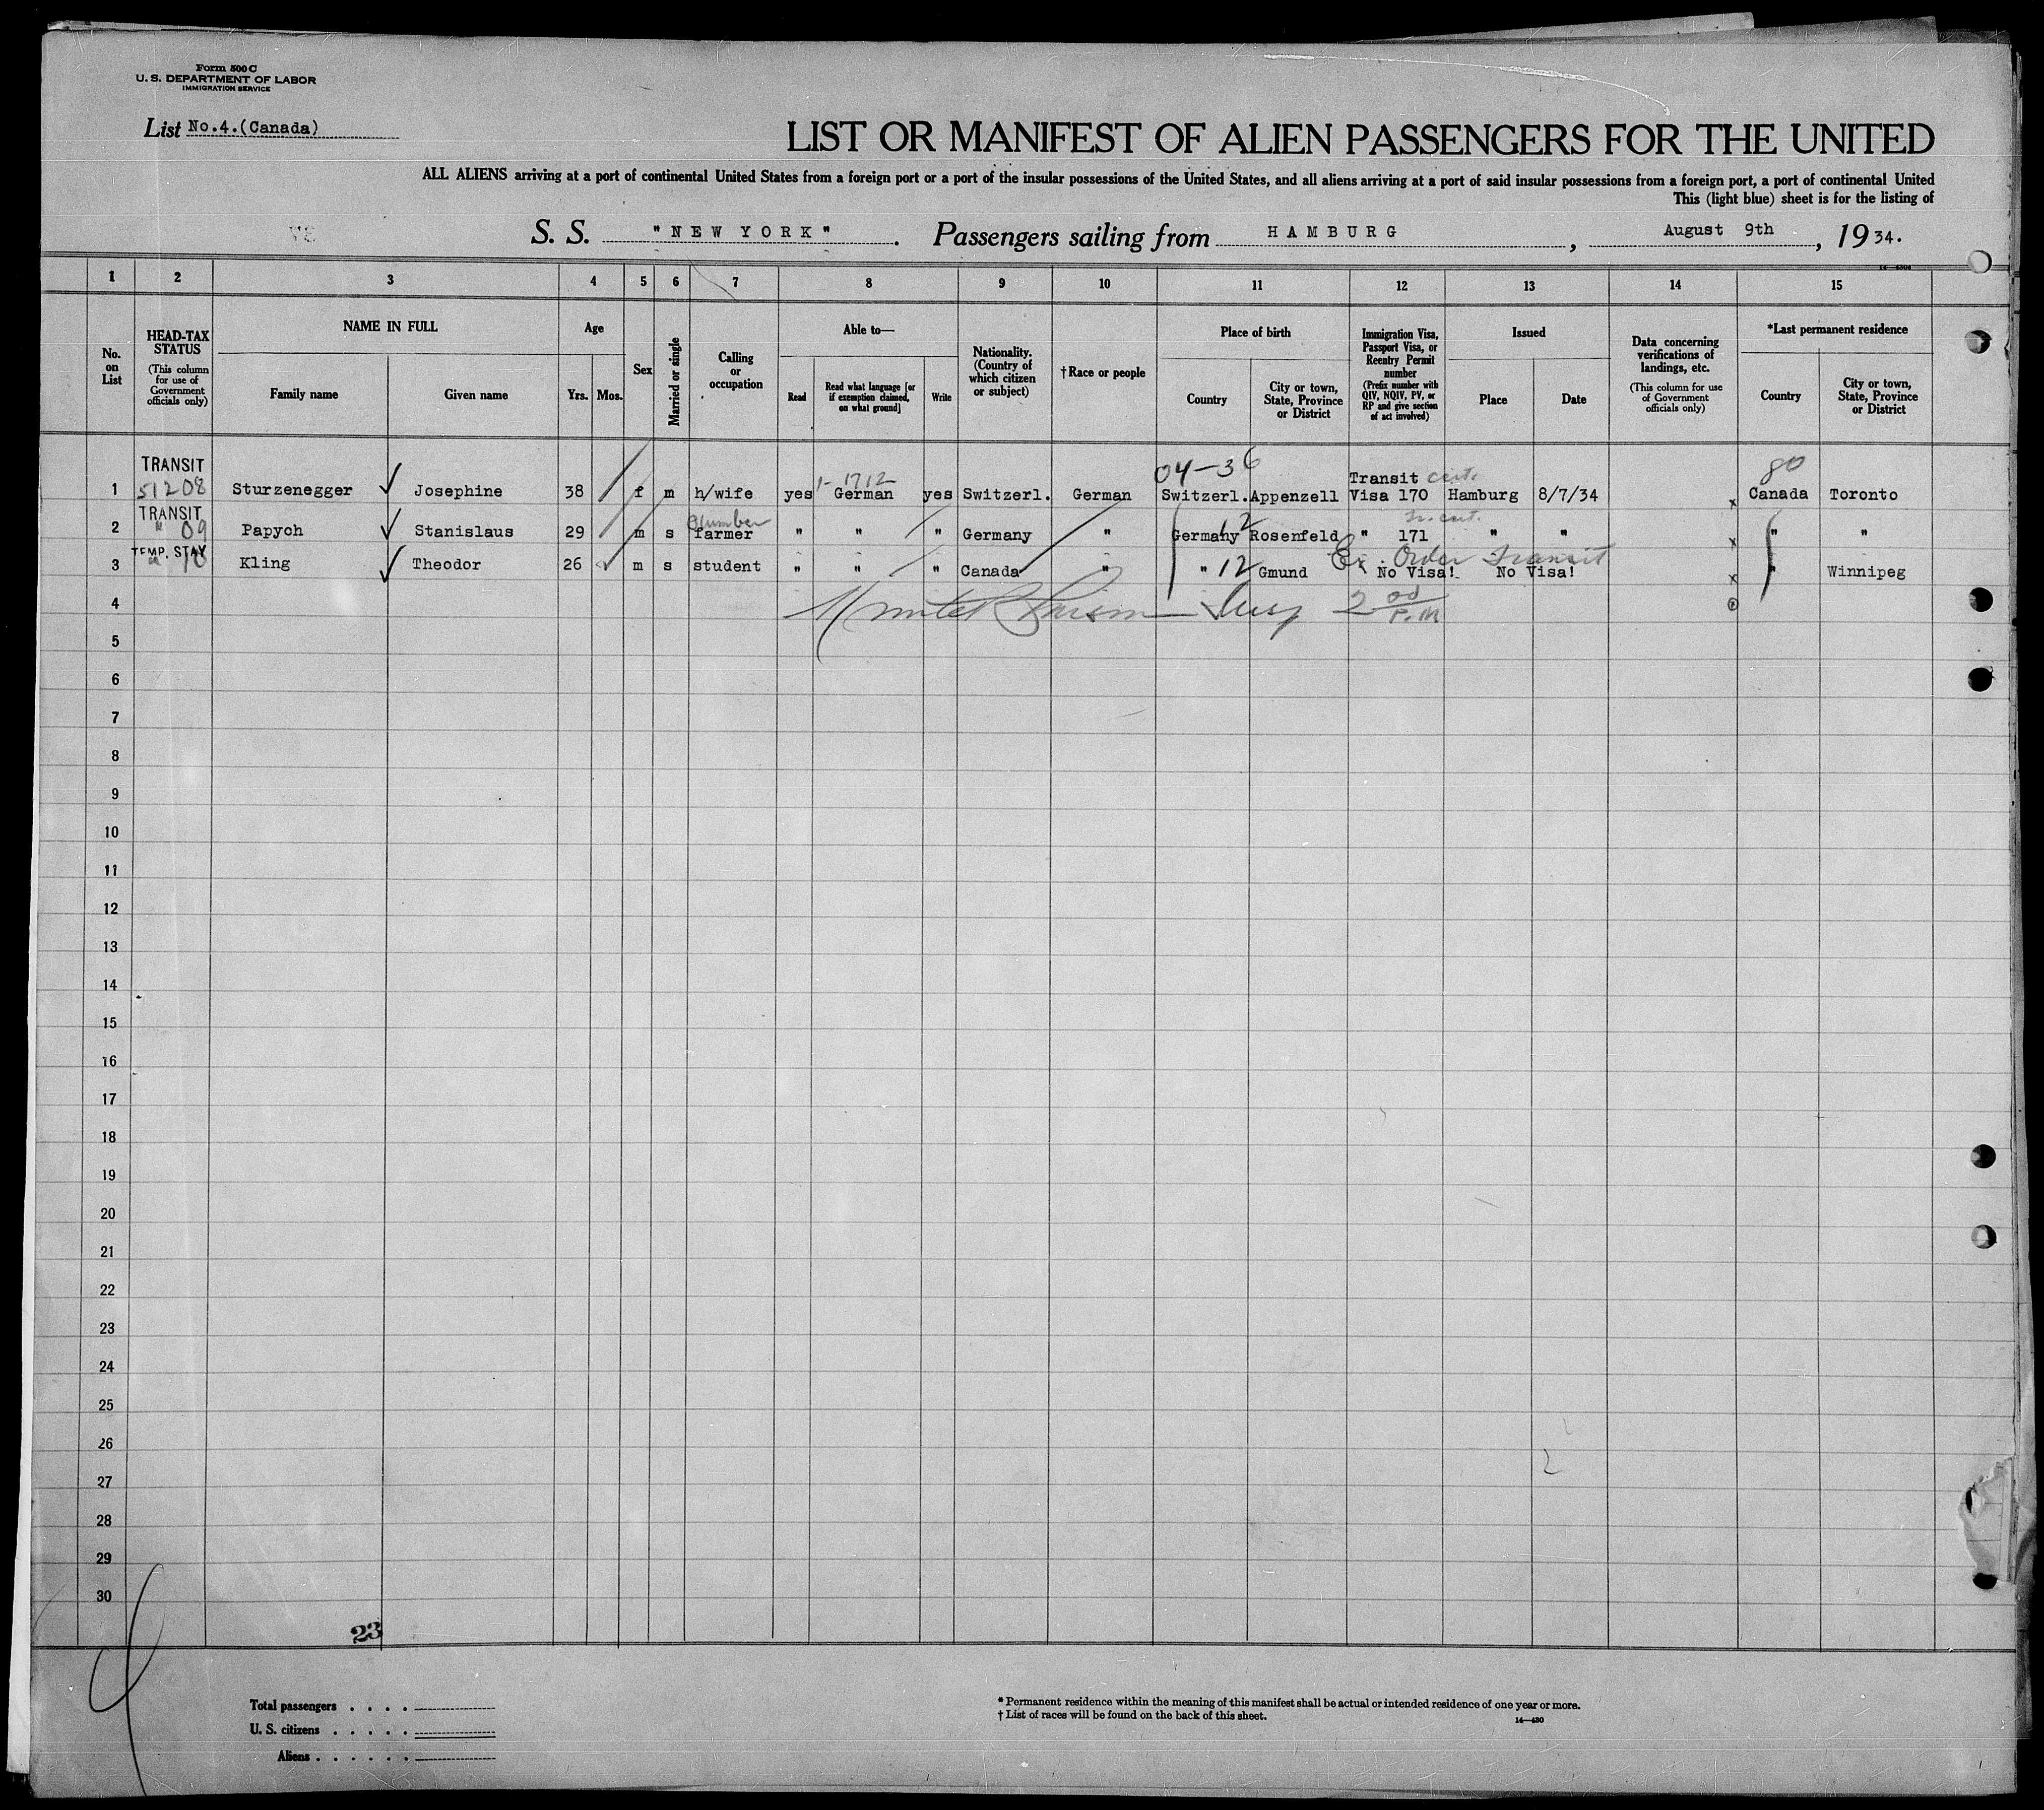 Form 500 C
U. S. DEPARTMENT OF LABOR
IMMIGRATION SERVICE
List No.4.(Canada)
LIST OR MANIFEST OF ALIEN PASSENGERS FOR THE UNITED
ALL ALIENS arriving at a port of continental United States from a foreign port or a port of the insular possessions of the United States, and all aliens arriving at a port of said insular possessions from a foreign port, a port of continental United
This (light blue) sheet is for the listing of
S. S. "NEW YORK". Passengers sailing from HAMBURG, August 9th, 1934.
1 2 3 4 5 6 7 8 9 10 11 12 13 14 15
No. on List
HEAD-TAX STATUS
(This column for use of Government officials only)
NAME IN FULL
Family name
Given name
Age
Yrs. Mos.
Sex
Married or single
Calling or occupation
Able to—
Read
Read what language [or if exemption claimed, on what ground]
Write
Nationality. (Country of which citizen or subject)
†Race or people
Place of birth
Country
City or town, State, Province or District
Immigration Visa, Passport Visa, or Reentry Permit number
(Prefix number with QIV, NQIV, PV, or RP and give section of act involved)
Issued
Place
Date
Data concerning verifications of landings, etc.
(This column for use of Government officials only)
*Last permanent residence
Country
City or town, State, Province or District
TRANSIT 1-1712 04-36 Transit 80
1 51208 Sturzenegger Josephine 38 f m h/wife yes German yes Switzerl. German Switzerl. Appenzell Visa 170 Hamburg 8/7/34 x Canada Toronto
TRANSIT
2 " 09 Papych Stanislaus 29 m s farmer " " " Germany " Germany 12 Rosenfeld " 171 " " x " "
TEMP. STAY Ex. Order Transit
3 " 10 Kling Theodor 26 m s student " " " Canada " " 12 Gmund No Visa! No Visa! x " Winnipeg
4 2 P.M
5
6
7
8
9
10
11
12
13
14
15
16
17
18
19
20
21
22
23
24
25
26
27
28
29
30
23
Total passengers . . . .
U. S. citizens . . . . .
Aliens . . . . . .
* Permanent residence within the meaning of this manifest shall be actual or intended residence of one year or more.
† List of races will be found on the back of this sheet.
14—430